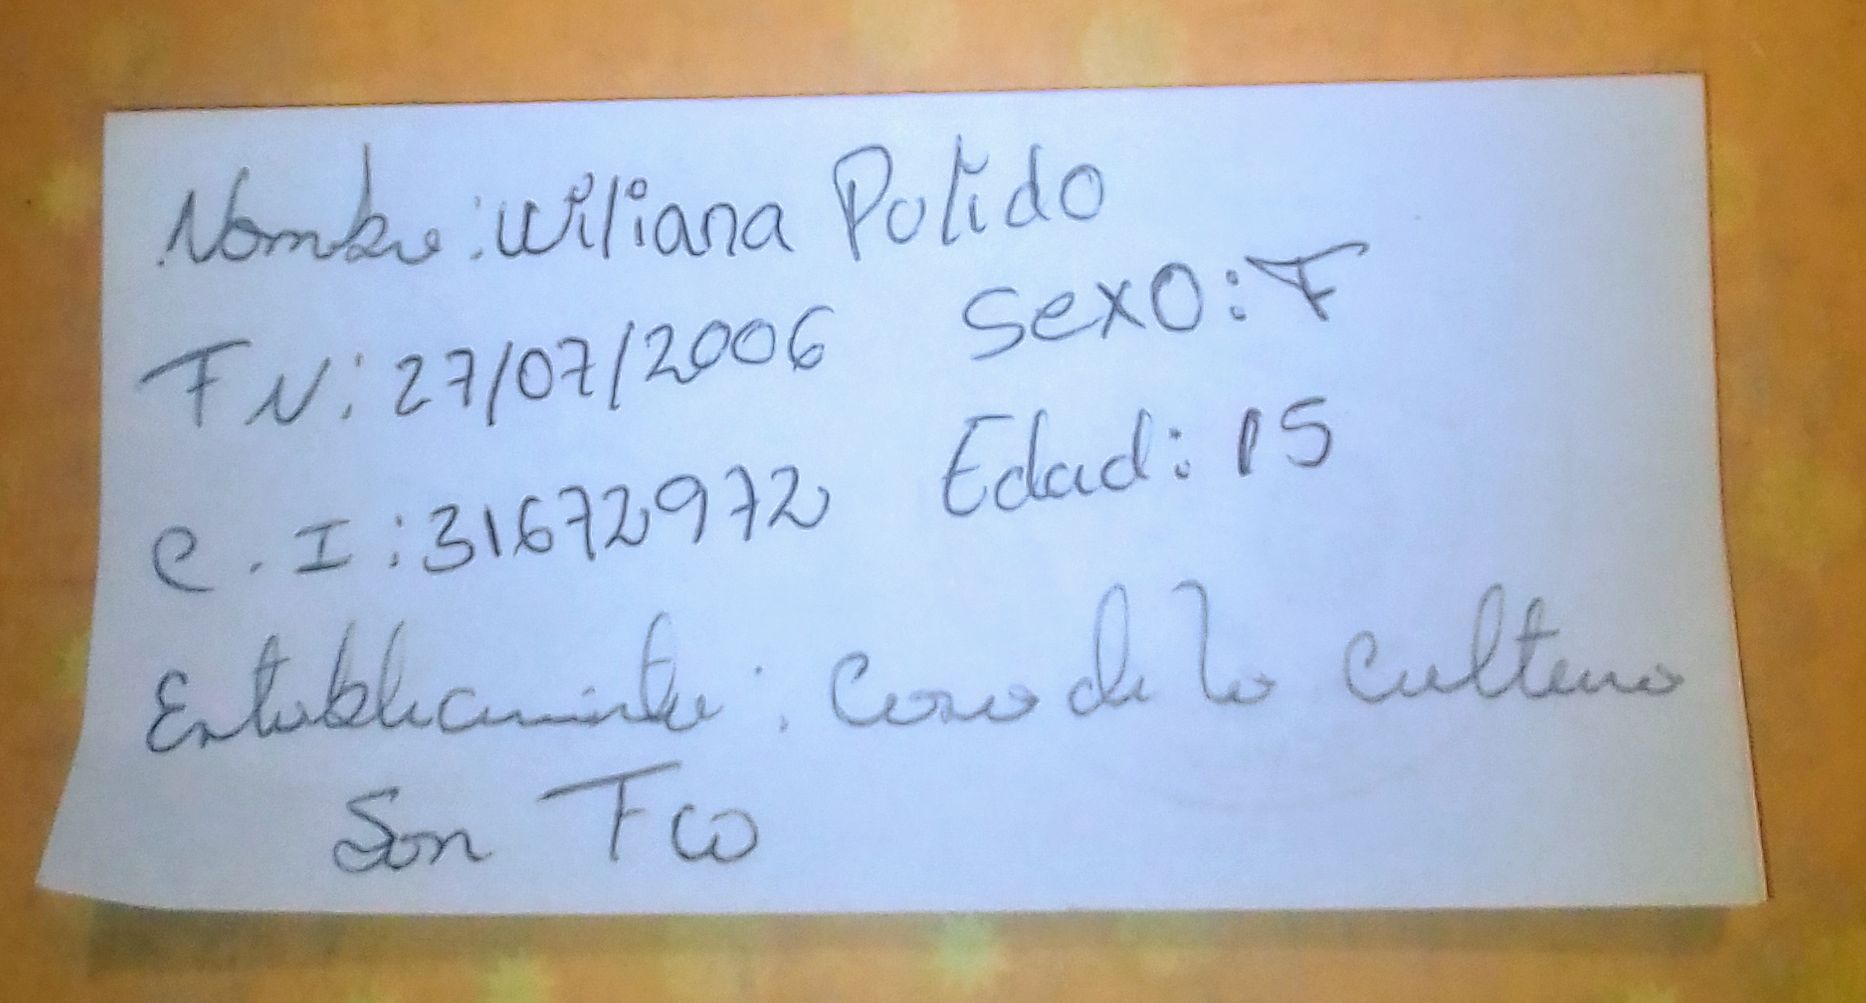 Nombre: Wiliana Pulido
F N: 27/07/2006 Sexo: F
C. I: 31672972 Edad: 15
Establecimiento: Casa de la Cultura
San Fco